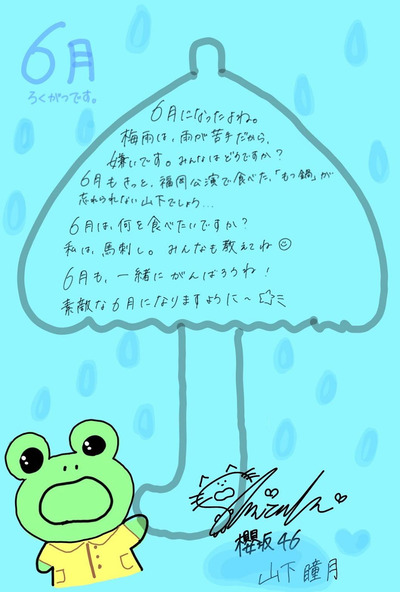 6月
ろくがつです。
6月になったよね。
梅雨は、雨が苦手だから、
嫌いです。みんなはどうですか?
6月もきっと、福岡公演で食べた、「もつ鍋」が
忘れられない山下でしょう...
6月は、何を食べたいですか?
私は、馬刺し。みんなも教えてね
6月も、一緒にがんばろうね!
素敵な6月になりますように〜
櫻坂46
山下瞳月